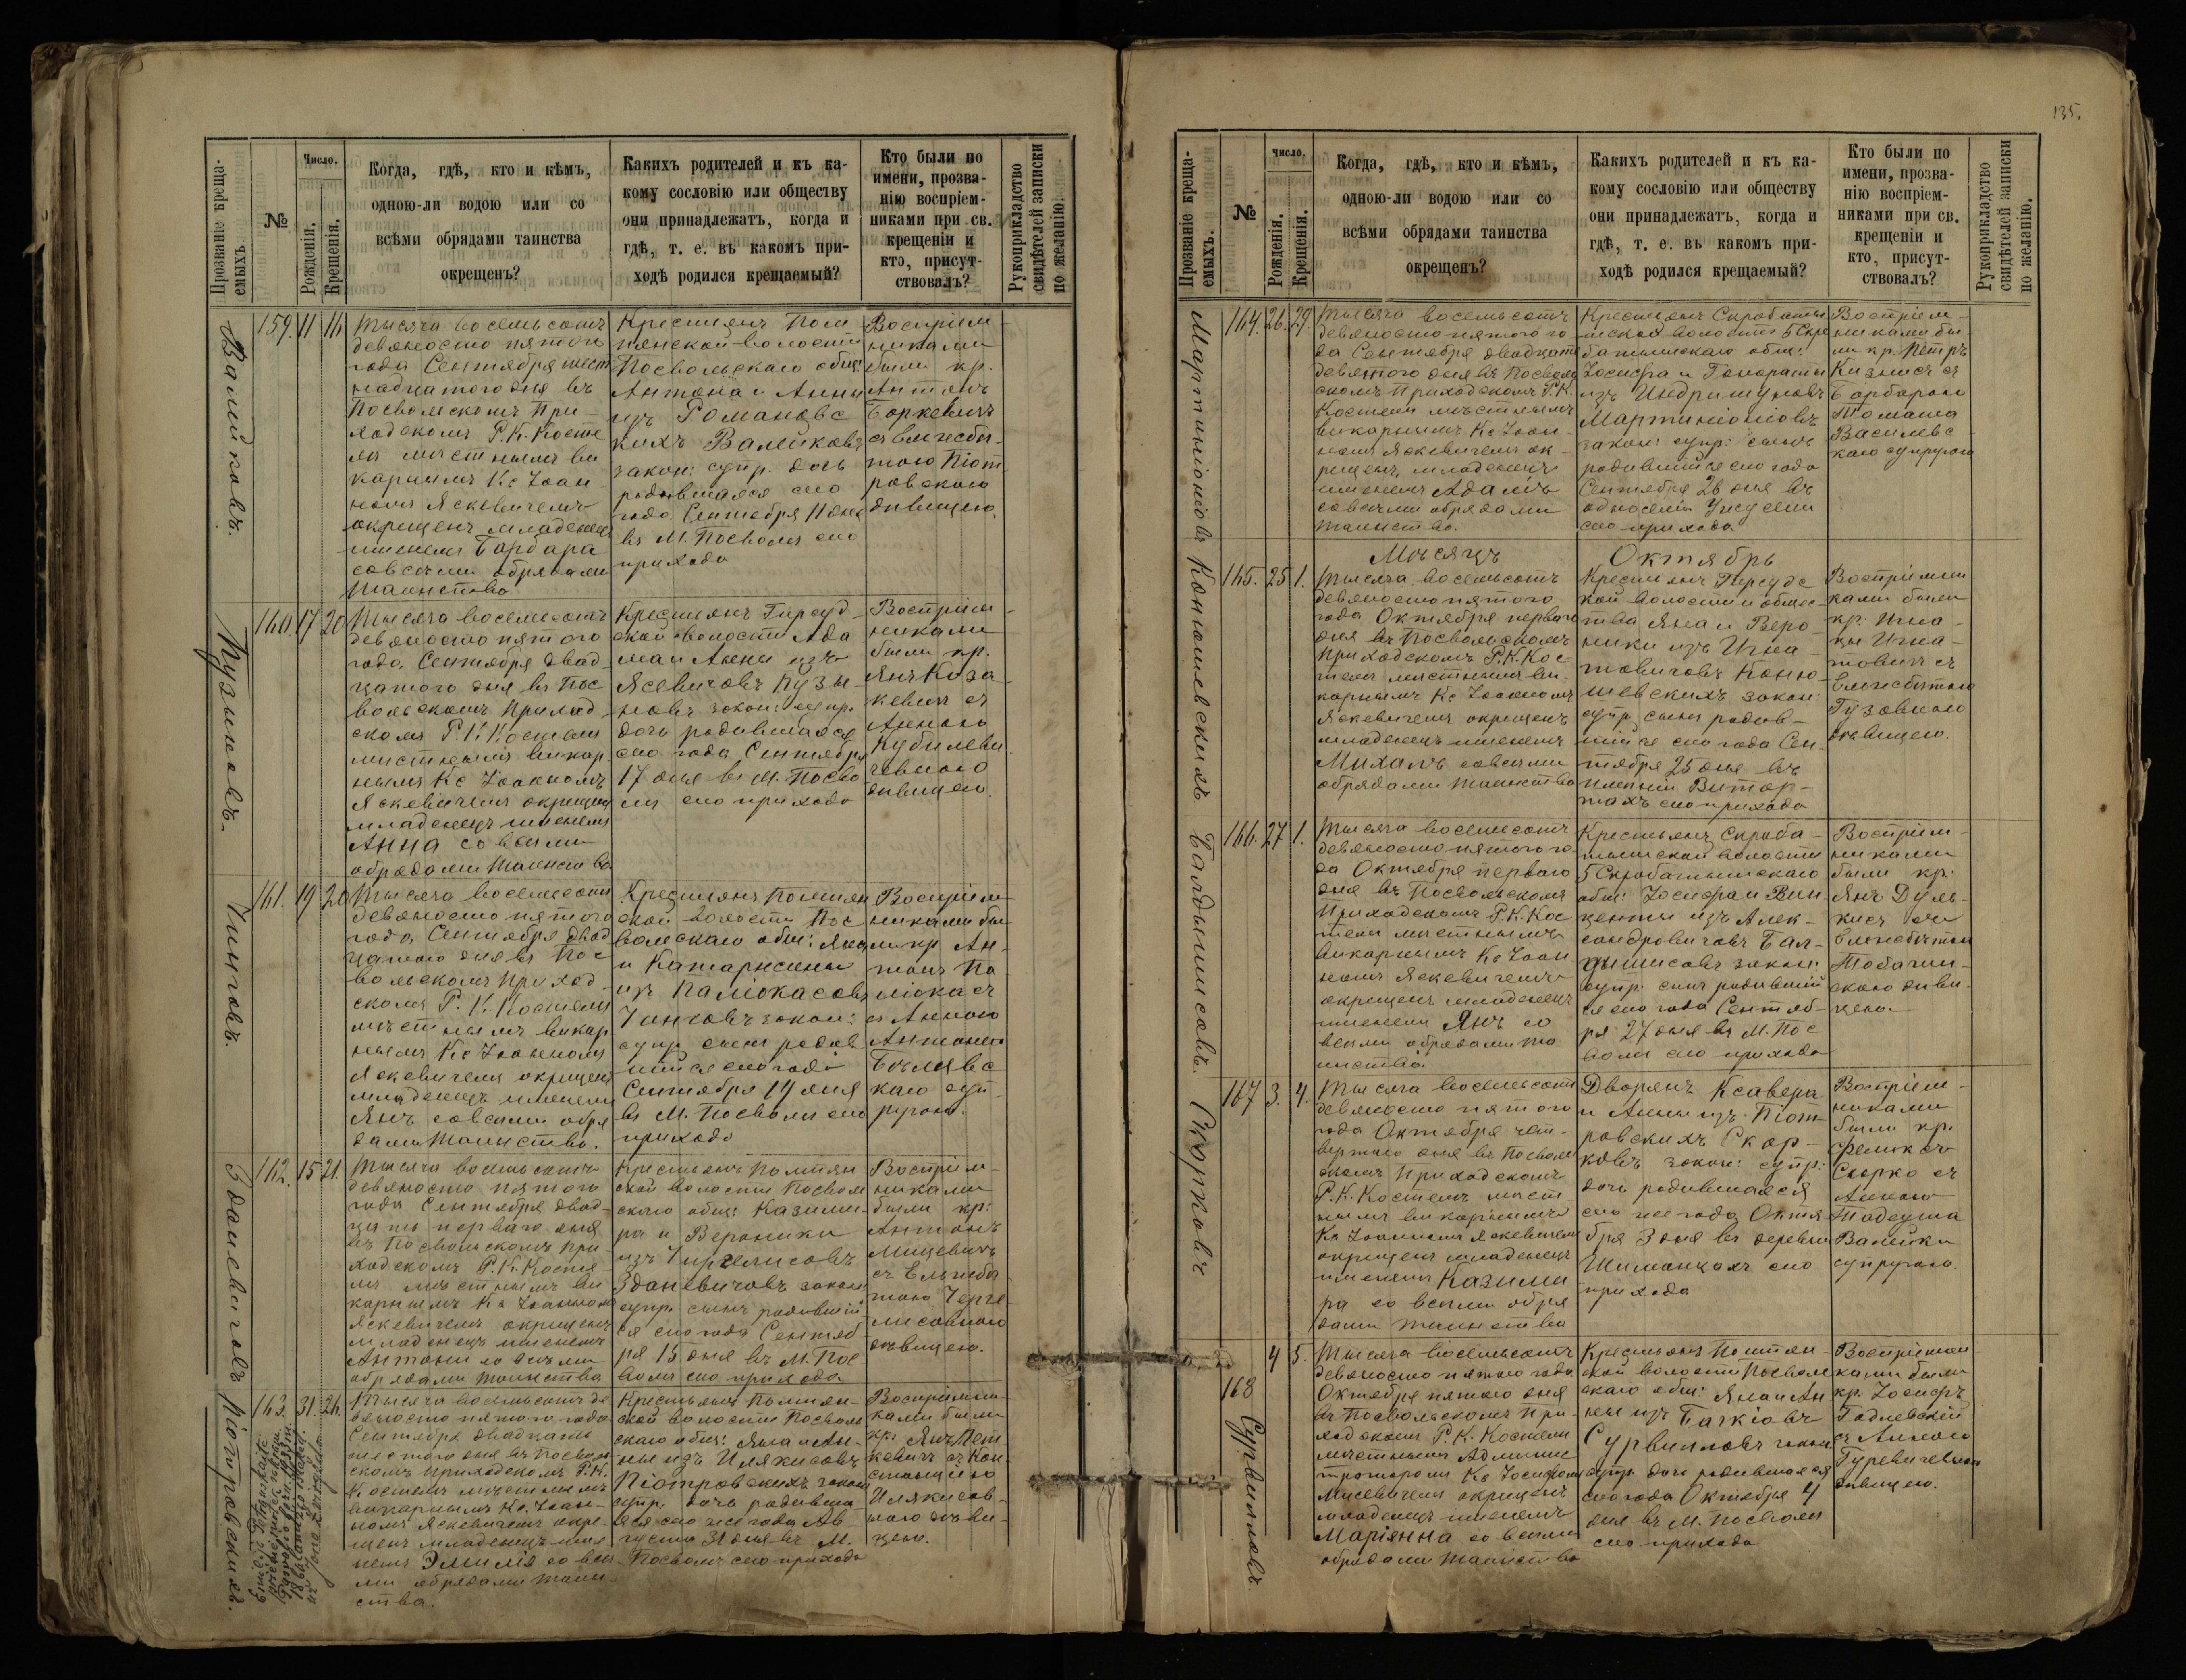 135.
Прозваніе креща-
емыхъ
№
Число.
Рожденія.
Крещенія.
Когда, гдѣ, кто и кѣмъ,
одною-ли водою или со
всѣми обрядами таинства
окрещенъ?
Какихъ родителей и къ ка-
кому сословію или обществу
они принадлежатъ, когда и
гдѣ, т. е. въ какомъ при-
ходѣ родился крещаемый?
Кто были по
имени, прозва-
нію воспріем-
никами при св.
крещеніи и
кто, присут-
ствовалъ?
Рукоприкладство
свидѣтелей записки
по желанію.
Валейковъ.
159. 11 16
Тысяча восемьсотъ
девяносто пятого
года Сентября шест
надцатого дня въ
Посвольскомъ При-
ходскомъ Р. К. Косте
лѣ мѣстнымъ ви
карнымъ Кс Іоан
номъ Яскевичемъ
окрещенъ младенецъ
именемъ Барбара
совсѣми обрядами
таинства
Крестьянъ Пом
пянской волости
Посвольскаго общ:
Антона и Анны
изъ Романовс
кихъ Валейковъ
закон: супр. дочь
родившаяся сего
года Сентября 11 дня
въ М. Посволѣ сего
прихода
Воспріем-
никами
были кр.
Антонъ
Боркевичъ
съ Елжбѣ-
тою Піот
ровскою
дѣвицею.
Пузыновъ.
160. 17 20
Тысяча восемьсотъ
девяносто пятого
года Сентября двад
цатого дня въ Пос
вольскомъ Приход
скомъ Р. К. Костелѣ
мѣстнымъ викар
нымъ Кс Іоанномъ
Яскевичемъ окрещенъ
младенецъ именемъ
Анна совсѣми
обрядами таинства
Крестьянъ Гирсуд-
ской волости Ада
ма и Анны изъ
Ясевичовъ Пузы-
новъ закон: супр.
дочь родившаяся
сего года Сентября
17 дня въ М. Посво
лѣ сего прихода
Воспріем-
никами
были кр.
Янъ Коза
кевичъ съ
Анною
Кубилеви
чевною
дѣвицею.
Чинговъ.
161. 19 20
Тысяча восемьсотъ
девяносто пятого
года Сентября двад
цатого дня въ Пос
вольскомъ Приход
скомъ Р. К. Костелѣ
мѣстнымъ викар
нымъ Кс Іоанномъ
Яскевичемъ окрещенъ
младенецъ именемъ
Янъ совсѣми обря
дами таинства.
Крестьянъ Помпян
ской волости Пос
вольскаго общ: Яна
и Катаржины
изъ Паліокасовъ
Чинговъ закон:
супр. сынъ родив
шійся сего года
Сентября 19 дня
въ М. Посволѣ сего
прихода
Воспріем-
никами бы-
ли кр. Ан-
тонъ Па
ліокасъ
съ Анною
Антонія
Бѣлявс
каго суп-
ругою.
Зданевичовъ
162. 15 21.
Тысяча восемьсотъ
девяносто пятого
года Сентября двад-
цать перваго дня
въ Посвольскомъ При-
ходскомъ Р. К. Косте-
лѣ мѣстнымъ ви
карнымъ Кс Іоанномъ
Яскевичемъ окрещенъ
младенецъ именемъ
Антоній со всѣми
обрядами таинства
Крестьянъ Помпян
ской волости Посвол
скаго общ: Казими-
ра и Вероники
изъ Чиргелисовъ
Зданевичовъ закон
супр. сынъ родившій
ся сего года Сентяб
ря 15 дня въ М. Пос
волѣ сего прихода.
Воспріем-
никами
были кр:
Антонъ
Мицевичъ
съ Елжбѣ
тою Черге
лисовною
дѣвицею.
Піотровскихъ.
163. 31 26.
Тысяча восемьсотъ де
вяносто пятого года
Сентября двадцать
шестого дня въ Посволь
скомъ Приходскомъ Р. К.
Костелѣ мѣстнымъ
викарнымъ Кс. Іоан-
номъ Яскевичемъ окре-
щенъ младенецъ име
немъ Эмилія со всѣ
ми обрядами таин
ства.
Крестьянъ Помпян-
ской волости Посволь
скаго общ: Яна и Ан-
ны изъ Илякисовъ
Піотровскихъ закон
супр. дочь родивша-
яся сего же года Ав
густа 31 дня въ М.
Посволѣ сего прихода
Воспріемни-
ками были
кр: Янъ Пет
кевичъ съ Кон
станціею
Илякисов-
ною дѣви-
цею.
Прозваніе креща-
емыхъ.
№
число.
Рожденія.
Крещенія.
Когда, гдѣ, кто и кѣмъ,
одною-ли водою или со
всѣми обрядами таинства
окрещенъ?
Какихъ родителей и къ ка-
кому сословію или обществу
они принадлежатъ, когда и
гдѣ, т. е. въ какомъ при-
ходѣ родился крещаемый?
Кто были по
имени, прозва-
нію воспріем-
никами при св.
крещеніи и
кто, присут-
ствовалъ?
Рукоприкладство
свидѣтелей записки
по желанію.
Мартиніонісовъ
164. 26. 29.
Тысяча восемьсотъ
девяносто пятого го
да Сентября двадцать
девятого дня въ Посволь
скомъ Приходскомъ Р. К.
Костелѣ мѣстнымъ
викарнымъ Кс Іоан-
номъ Яскевичемъ ок-
рещенъ младенецъ
именемъ Адамъ
совсѣми обрядами
таинства.
Крестьянъ Скробатын
шской волости 5 Скро
батышскаго общ:
Іосифа и Гонораты
изъ Индришуновъ
Мартиніонісовъ
закон: супр: сынъ
родившійся сего года
Сентября 26 дня въ
односеліи
сего прихода
Воспріем-
никами бы-
ли кр. Петръ
Кизнисъ съ
Барбарою
Томаша
Василевс
каго супругою
Мѣсяцъ Октябрь
Конюшевскихъ
165. 25 1.
Тысяча восемьсотъ
девяносто пятого
года Октября перваго
дня въ Посвольскомъ
Приходскомъ Р. К. Кос-
телѣ мѣстнымъ ви-
карнымъ Кс Іоанномъ
Яскевичемъ окрещенъ
младенецъ именемъ
Михалъ совсѣми
обрядами таинства
Крестьянъ Гирсудс
кой волости и общес-
тва Яна и Веро-
ники изъ Игна-
товичовъ Коню-
шевскихъ закон:
супр. сынъ родив-
шійся сего года Сен-
тября 25 дня въ
имѣніи Витор-
тахъ сего прихода
Воспріемни
ками были
кр. Игна-
цы Игна-
товичъ съ
Елжбѣтою
Гузовною
дѣвицею.
Балдышисовъ.
166. 27 1.
Тысяча восемьсотъ
девяносто пятого го-
да Октября перваго
дня въ Посвольскомъ
Приходскомъ Р. К. Кос
телѣ мѣстнымъ
викарнымъ Кс Іоан
номъ Яскевичемъ
окрещенъ младенецъ
именемъ Янъ со
всѣми обрядами та
инства.
Крестьянъ Скроба-
тышской волости
5 Скробатышскаго
общ: Іосифа и Вин
центы изъ Алек-
сандровичовъ Бал-
дышисовъ закон:
супр. сынъ родившій
ся сего года Сентяб-
ря 27 дня въ М. Пос
волѣ сего прихода
Воспріем-
никами
были кр:
Янъ Дуль-
кисъ съ
Елжбѣтою
Тобагин-
скою дѣви-
цею.
Скорковъ
167 3. 4.
Тысяча восемьсотъ
девяносто пятого
года Октября чет-
вертаго дня въ Посволь
скомъ Приходскомъ
Р. К. Костелѣ мѣст-
нымъ викарнымъ
Кс Іоанномъ Яскевичемъ
окрещенъ младенецъ
именемъ Казими
ра со всѣми обря
дами таинства
Дворянъ Ксавера
и Анны изъ Піот-
ровскихъ Скор-
ковъ закон: супр:
дочь родившаяся
сего же года Октя
бря 3 дня въ деревнѣ
Шиманцахъ сего
прихода
Воспріем-
никами
были кр.
Феликсъ
Скорко съ
Анною
Тадеуша
Валейки
супругою.
Сурвилловъ
168 4 5.
Тысяча восемьсотъ
девяносто пятаго года
Октября пятаго дня
въ Посвольскомъ При-
ходскомъ Р. К. Костелѣ
мѣстнымъ Админис
траторомъ Кс Іосифомъ
Мисевичемъ окрещенъ
младенецъ именемъ
Маріянна со всѣми
обрядами таинства
Крестьянъ Помпян-
ской волости Посволь
скаго общ: Яна и Ан
ны изъ Бачкіовъ
Сурвилловъ закон
супр. дочь родившаяся
сего года Октября 4
дня въ М. Посволѣ
сего прихода
Воспріемни
ками были
кр. Іосифъ
Гадлевскій
съ Анною
Гуревичевною
дѣвицею.